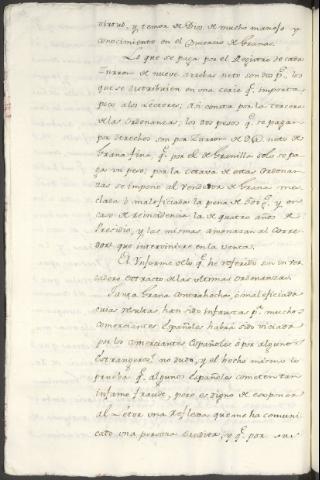 virtud, y temor de Dios de mucho manejo y
conocimiento en el Ducario de Granas.
Lo que se paga por el Registro de cada
Zurron de nueve arrobas neto son dos p.s, los
que se distribuien en una caxe q.e importa
poco a los Lectores. Añ consta por la tercera
de las Ordenanzas, los dos pesos q.e se pagan
por derechos son por Zurron de 9@ neto de
Grana fina q.e por el de Granilla solo se pa-
ga un peso, por la octava de estas Ordenan-
zas se impone al Vendedor de Grana mez-
clada ó maleficiada la pena de p.s y en
caso de reincidencia la de quatro años de
Presidio, y las mismas amenazan al Corre-
dor, que interviniere en la venta.
El Informe de lo q.e he referido es un ver-
dadero extracto de las ultimas Ordenanzas.
Tanta Grana contrahecha, ó maleficiada
cuias resultas han sido infaustas p.a muchos
comerciantes Españoles habrá sido viciada
por los comerciantes Españoles ó por algunos
Estrangeros? no dudo, y el hecho mismo lo
prueba q.e algunos Españoles cometen tan
infame fraude, pero es digno de exponer
al Letor una reflexa que me ha comuni-
cato una persona erudita, y q.e por sus